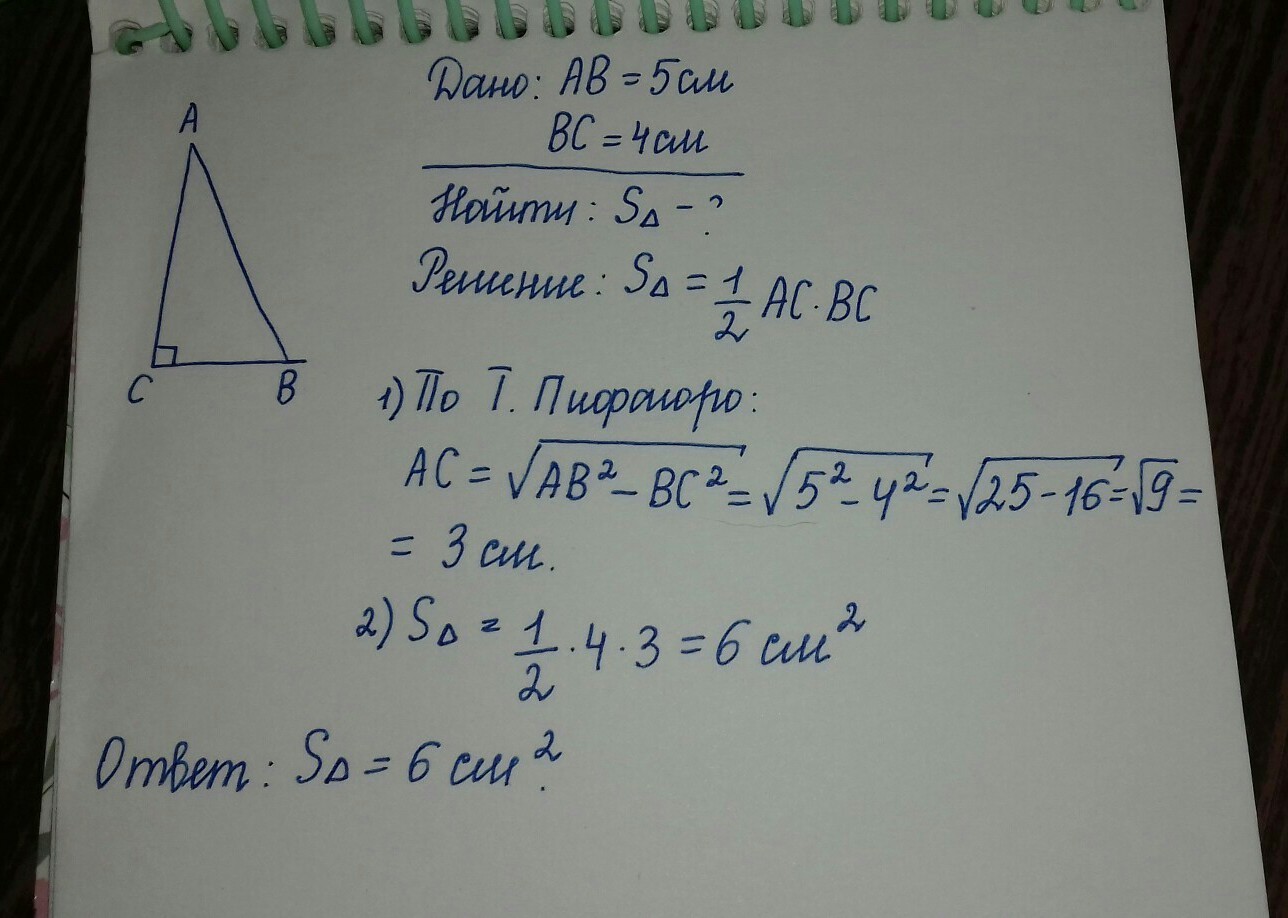 A
C
B
Дано: AB = 5 см
BC = 4 см
Найти: S△ - ?
Решение: S△ = 1/2 AC · BC
1) По Т. Пифагоро:
AC = √(AB² - BC²) = √(5² - 4²) = √(25 - 16) = √9 =
= 3 см.
2) S△ = 1/2 · 4 · 3 = 6 см²
Ответ: S△ = 6 см².